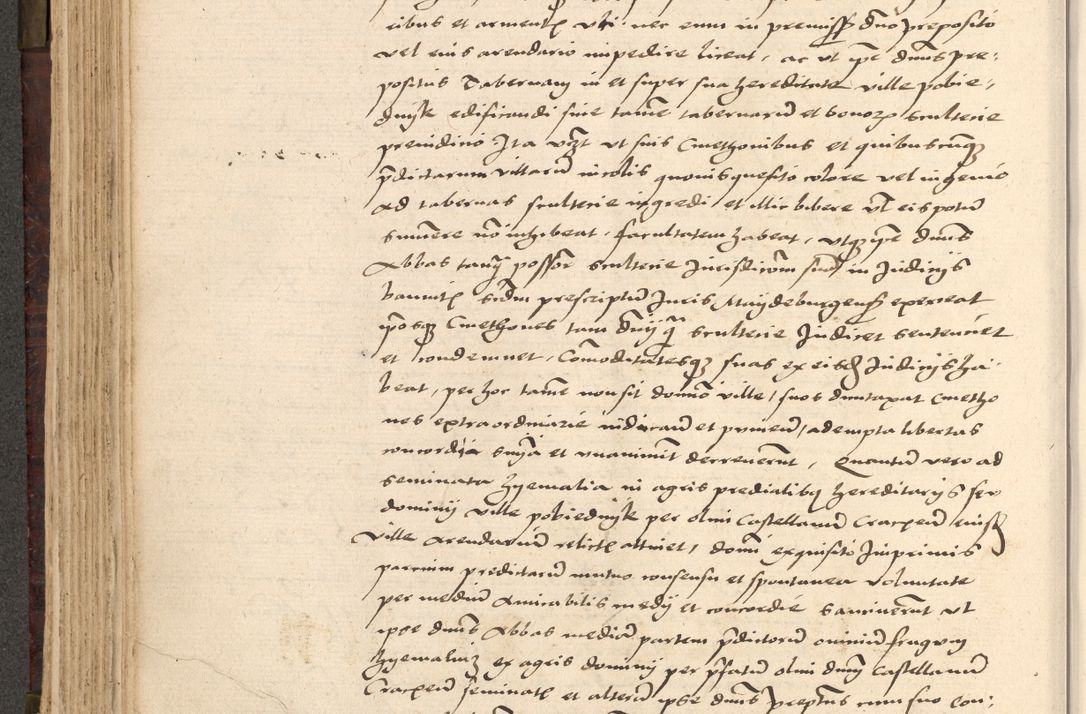 cibus et armentis uti nec enim in premissis dno preposito
vel eius arendario impedire liceat, ac ut ipe dnus pre-
positus Tabernam in et super sua hereditate ville pobie-
dnijk edificandi sine tame tabernaru et bonoru scultecie
preiudicio Ita vzt ut suis Cmethonibus et quibuscuqz
pdictarum villaru incolis quouisquesito colore vel ingenio
ad tabernas scultecie ingredi et illic bibere vl eis potu
sumere no inhibeat, facultatem habeat, utqz ipe dnus
Abbas tanqz possor scultecie Jurisdicom sua in Judicijs
bannitis scdm prescriptu Juris Maijdeburgens exerceat
iposqz Cmethones tam dnij q scultecie Judicet sentenciet
et condemnet, Comoditatesqz suas ex eisd Judicijs ha-
beat, per hoc tame non sit domio ville, suos duntaxat Cmetho
nes extraordinarie iudicand et puniend, adempta libertas
concordija sumia et unanimit decreuerunt, Quantu vero ad
seminata hyemalia in agris predialibqz hereditarijs seu
dominij ville pobiednijk per olim Castellanu Cracoien eiusd
ville Arendariu relictis attinet, domi exquisito Imprimis
parcium predictaru mutuo consensu et spontanea voluntate
per mediu Amicabilis medij et concordie sanciuerunt ut
ipse dnus Abbas media partem pdictoru omniu frugum
hyemaliuz ex agris dominij per pfatu olim dnm Castellanu
Cracoien seminatis et alteru ipse dnus Preptus cum suo Con-